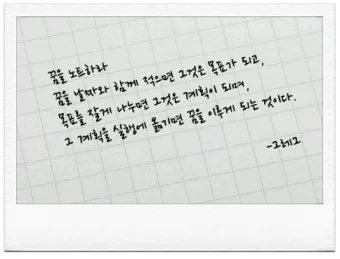 꿈을 노트하라
꿈을 날짜와 함께 적으면 그것은 목표가 되고,
목표를 잘게 나누면 그것은 계획이 되며,
그 계획을 실행에 옮기면 꿈을 이루게 되는 것이다.
-그레그